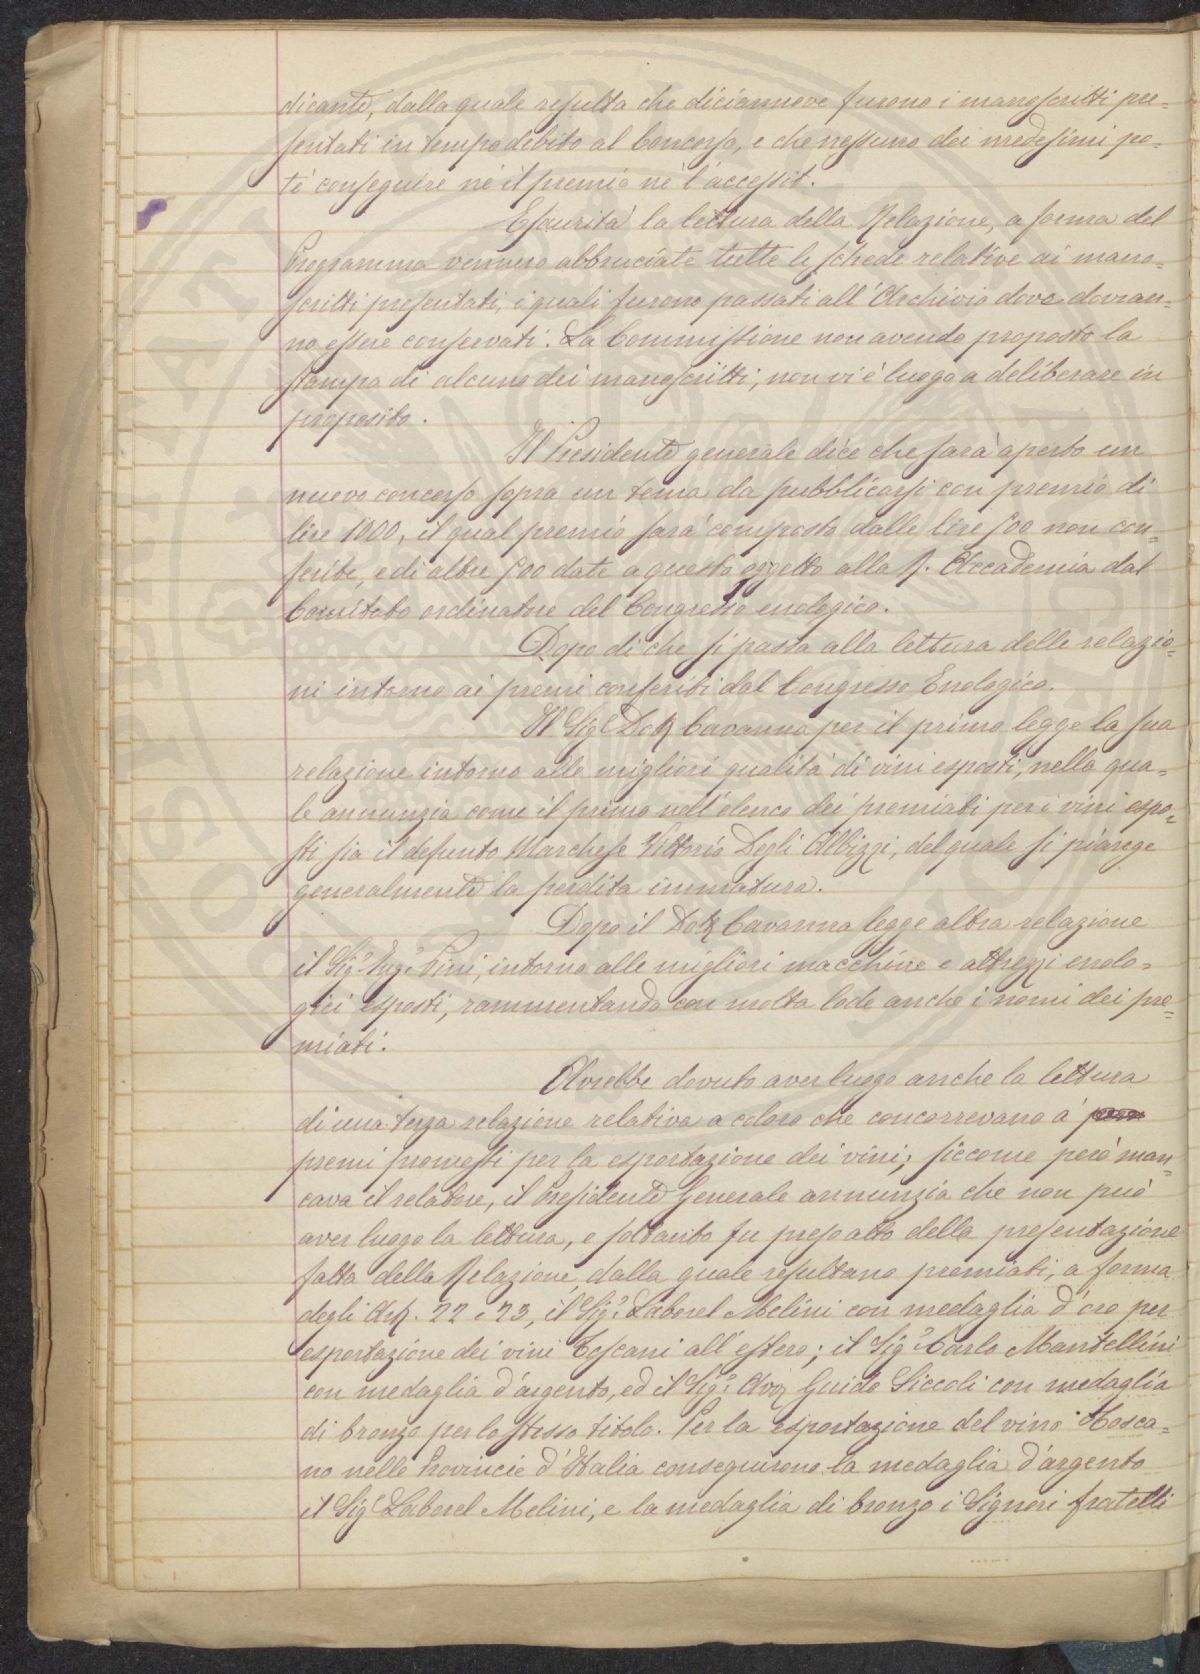 dicante, dalla quale resulta che diciannove furono i manoscritti pre=
sentati in tempo debito al Concorso, e che nessuno dei medesimi po=
tè conseguire nè il premio nè l'accessit.
Esaurita la lettura della Relazione, a forma del
Programma vennero abbruciate tutte le schede relative ai mano=
scritti presentati, i quali furono passati all'Archivio dove dovran=
no essere conservati. La Commissione non avendo proposto la
stampa di alcuno dei manoscritti, non vi è luogo a deliberare in
proposito.
Il Presidente generale dice che sarà aperto un
nuovo concorso sopra un tema da pubblicarsi con premio di
lire 1000, il qual premio sarà composto dalle lire 500 non con=
ferite, e di altre 500 date a questo oggetto alla R. Accademia dal
Comitato ordinatore del Congresso enologico.
Dopo di che si passa alla lettura delle relazio=
ni intorno ai premi conferiti dal Congresso Enologico.
Il Sig.r Dott. Cavanna per il primo legge la sua
relazione intorno alle migliori qualità di vini esposti, nella qua=
le annunzia come il primo nell'elenco dei premiati per i vini espo=
sti sia il defunto Marchese Vittorio Degli Albizzi, del quale si piange
generalmente la perdita immatura.
Dopo il Dott. Cavanna legge altra relazione
il Sig.r Ing.r Pini, intorno alle migliori macchine e attrezzi enolo=
gici esposti, rammentando con molta lode anche i nomi dei pre=
miati.
Avrebbe dovuto aver luogo anche la lettura
di una terza relazione relativa a coloro che concorrevano a'
premi promessi per la esportazione dei vini; siccome però man=
cava il relatore, il Presidente Generale annunzia che non può
aver luogo la lettura, e soltanto fu preso atto della presentazione
fatta della Relazione dalla quale resultano premiati, a forma
degli Art. 22 e 23, il Sig.r Laborel Melini con medaglia d'oro per
esportazione dei vini Toscani all'estero; il Sig.r Carlo Mantellini
con medaglia d'argento, ed il Sig.r Avv. Guido Siccoli con medaglia
di bronzo per lo stesso titolo. Per la esportazione del vino Tosca=
no nelle Provincie d'Italia conseguirono la medaglia d'argento
il Sig.r Laborel Melini, e la medaglia di bronzo i Signori fratelli